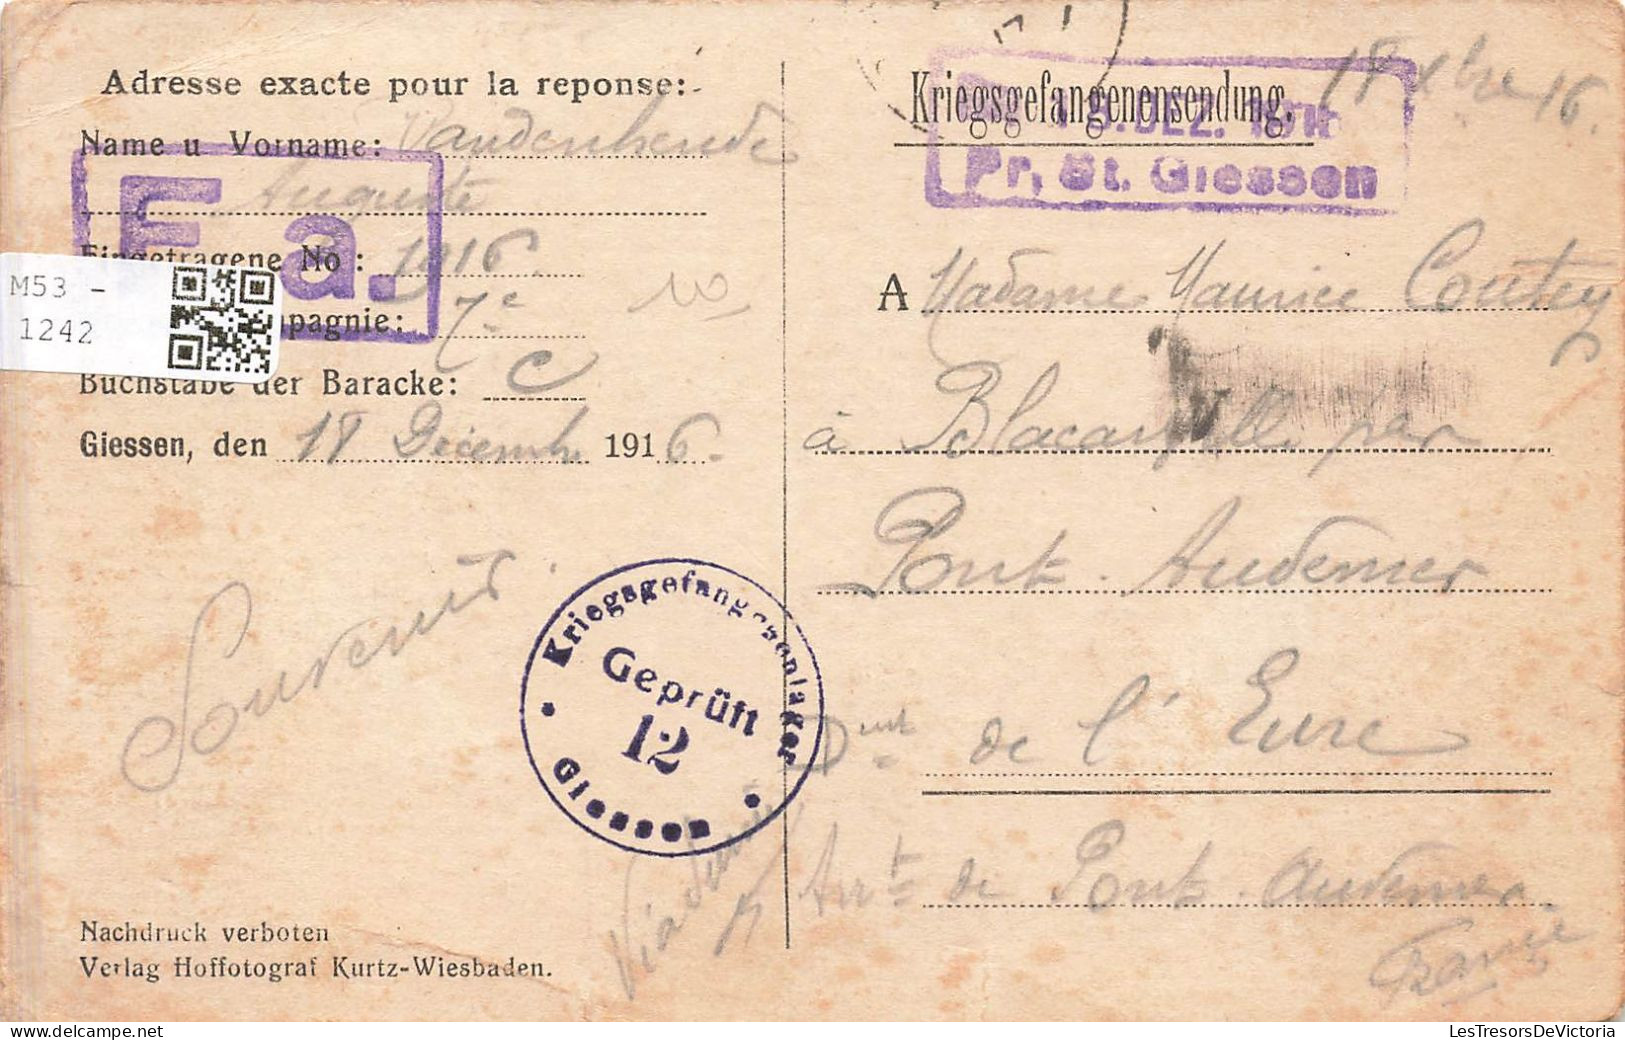 Adresse exacte pour la reponse:
Name u Vorname: Vandenhende
Auguste
Eingetragene No: 1916
mpagnie: 7e
Buchstabe der Baracke: C
Giessen, den 18 Decemb 1916.
Fa.
M53 -
1242
10
Souvenir
Kriegsgefangenenlager
Geprüft
12
Giessen
Nachdruck verboten
Verlag Hoffotograf Kurtz-Wiesbaden.
Kriegsgefangenensendung.
18 Xbre 16.
DEZ.
Pr. St. Giessen
A Madame Maurice
à par
Pont Audemer
Dmt de l'Eure
Arrt de Pont Audemer
France
LesTresorsDeVictoria